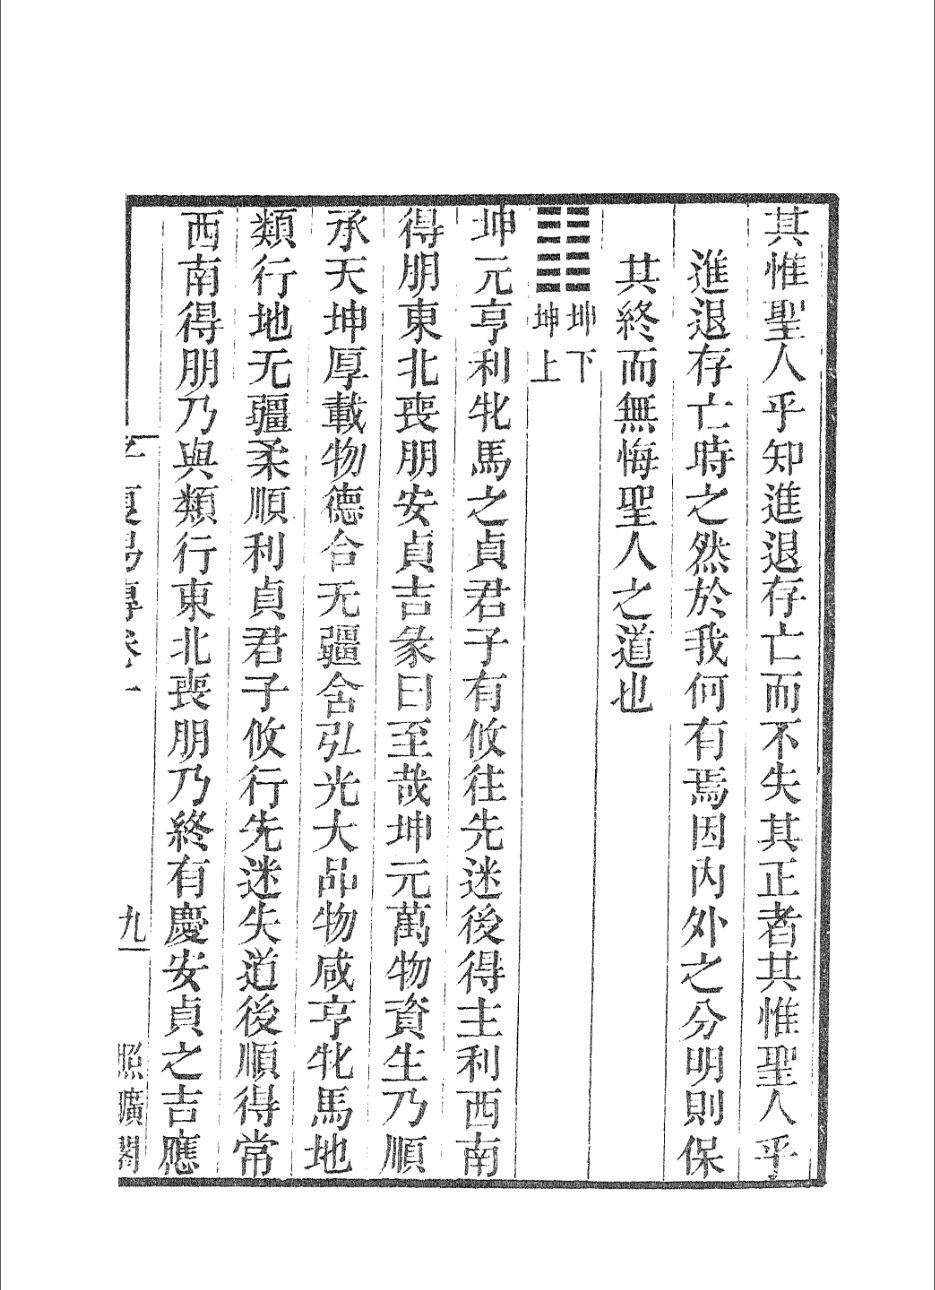 其惟聖人乎知進退存亡而不失其正者其惟聖人乎
進退存亡時之然於我何有焉因内外之分明則保
其終而無悔聖人之道也
坤下
坤上
坤元亨利牝馬之貞君子有攸往先迷後得主利西南
得朋東北喪朋安貞吉彖曰至哉坤元萬物資生乃順
承天坤厚載物德合无疆含弘光大品物咸亨牝馬地
類行地无疆柔順利貞君子攸行先迷失道後順得常
西南得朋乃與類行東北喪朋乃終有慶安貞之吉應
九
照曠閣